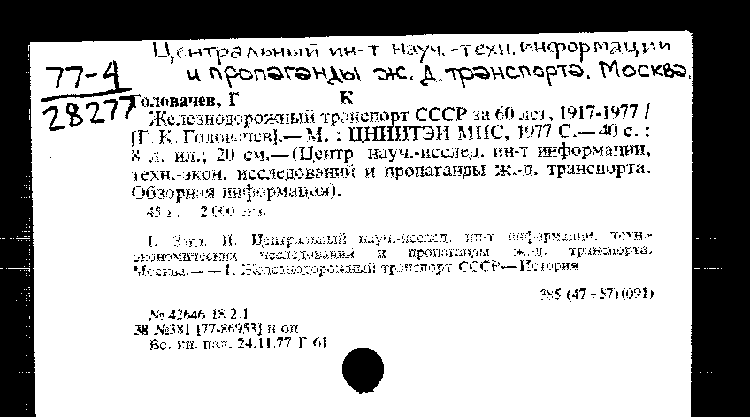 Центральный ин-т науч.-техн. информации
и пропаганды ж. д. транспорта. Москва.
77-4
28277
Головачев, Г К
Железнодорожный транспорт СССР за 60 лет, 1917-1977 /
[Г. К. Головачев].— М. : ЦНИИТЭИ МПС, 1977 С.— 40 с. :
8 л. ил.; 20 см.— (Центр науч.-исслед. ин-т информации,
техн.-экон. исследований и пропаганды ж.-д. транспорта.
Обзорная информация).
45 к. 2 000 экз.
I. Загл. II. Центральный науч.-исслед. ин-т информации, техни-
экономических исследований и пропаганды ж.-д. транспорта.
Москва.— — 1. Железнодорожный транспорт СССР—История
385 (47+57) (091)
№ 42646 18.2.1
38 №381 [77-86953] п оп
Вс. кн. пал. 24.11.77 Г-61